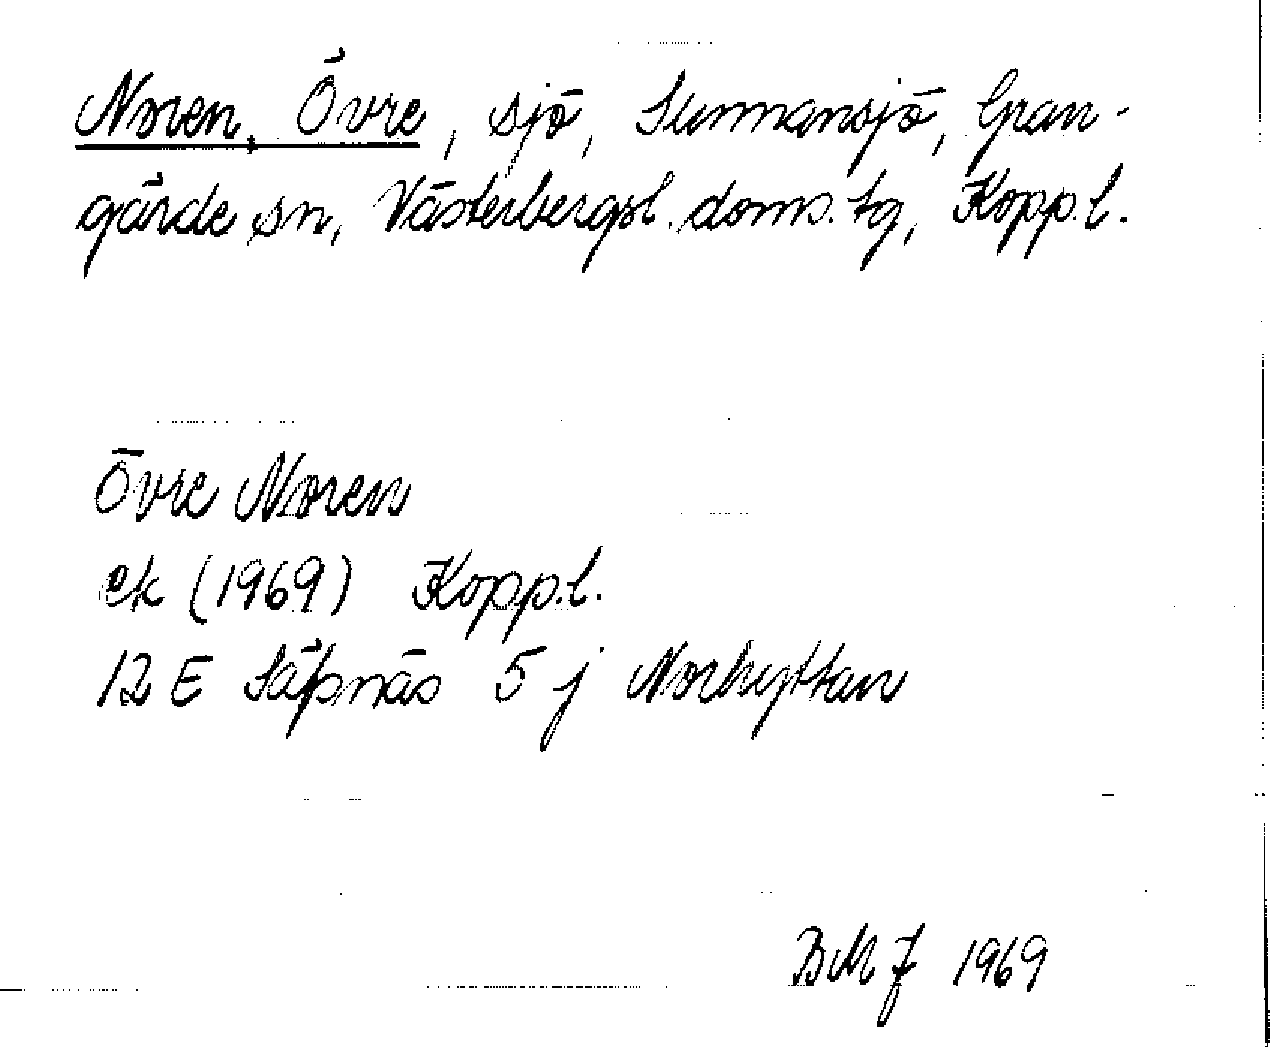 Noren, Övre, sjö, Sunnansjö, Gran-
gärde sn, Västerbergsl. doms. tg, Kopp.l.
Övre Noren
ek (1969) Kopp.l.
12 E Säfsnäs 5 j Norhyttan
BMJ 1969